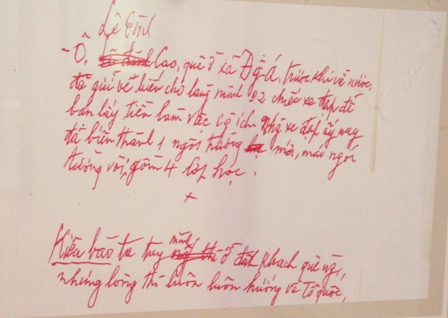 Lê Đình
- Ô. Cao, quê ở xã Đ.Á. trước khi về nước,
đã gửi về biếu cho làng mình 92 chiếc xe đạp để
bán lấy tiền làm việc có ích. xe đạp ấy nay
đã biến thành 1 ngôi trường mới, mái ngói
tường vôi, gồm 4 lớp học.
+
Kiều bào ta tuy mình ở khách quê người,
nhưng lòng thì luôn luôn hướng về Tổ quốc,